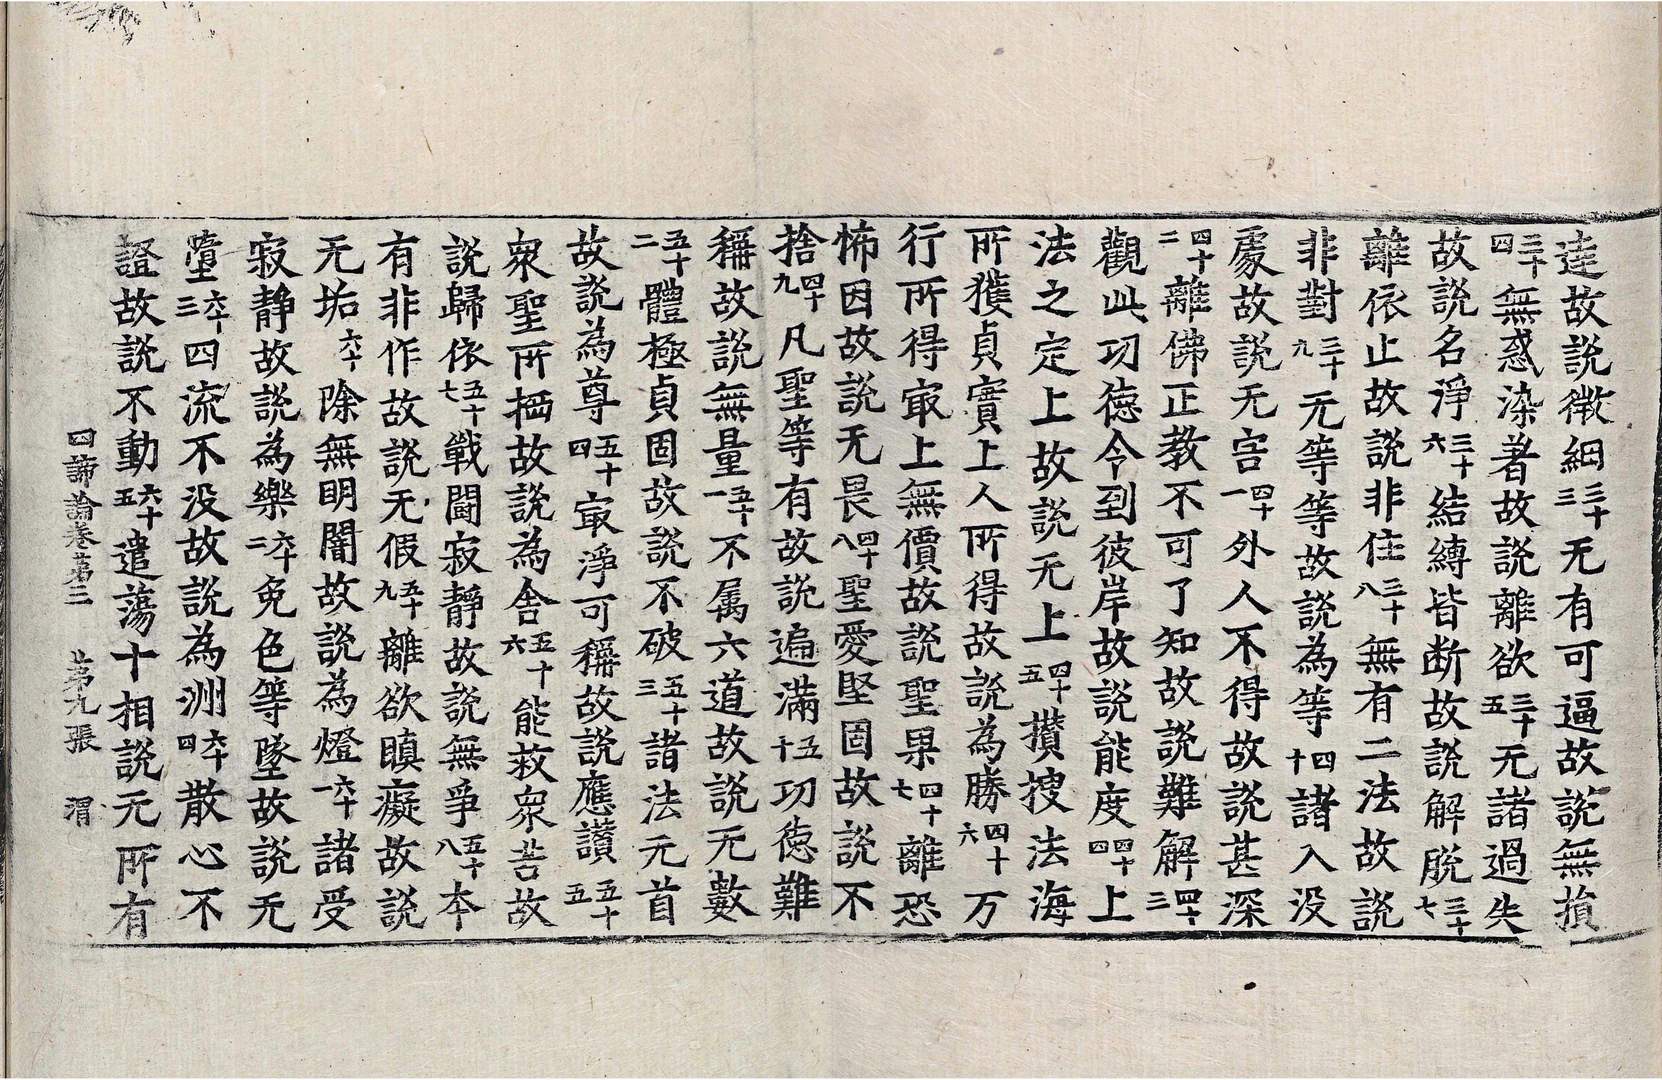 逹故說微細三十三无有可逼故說無損
三十四無惑染著故說離欲三十五无諸過失
故說名淨三十六結縛皆断故說解脫三十七
離依止故說非住三十八無有二法故說
非對三十九无等等故說為等四十諸入没
處故說无害四十一外人不得故說甚深
四十二離佛正教不可了知故說難解四十三
觀此功德令到彼岸故說能度四十四上
法之定上故說无上四十五攢搜法海
所獲貞實上人所得故說為勝四十六万
行所得㝡上無價故說聖果四十七離恐
怖因故說无畏四十八聖愛堅固故說不
捨四十九凡聖等有故說遍滿五十功德難
稱故說無量五十一不属六道故說无數
五十二體極貞固故說不破五十三諸法元首
故說為尊五十四㝡淨可稱故說應讃五十五
衆聖所栖故說為舍五十六能救衆苦故
說歸依五十七戰鬪寂靜故說無爭五十八本
有非作故說无假五十九離欲瞋癡故說
无垢六十除無明闇故說為燈六十一諸受
寂静故說為樂六十二免色等墜故說无
墮六十三四流不没故說為洲六十四散心不
證故說不動六十五遣蕩十相說无所有
四諦論卷苐三　苐九張　渭